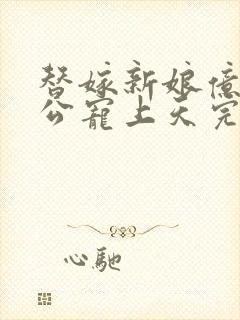 替嫁新娘億
公寵上天完
心馳